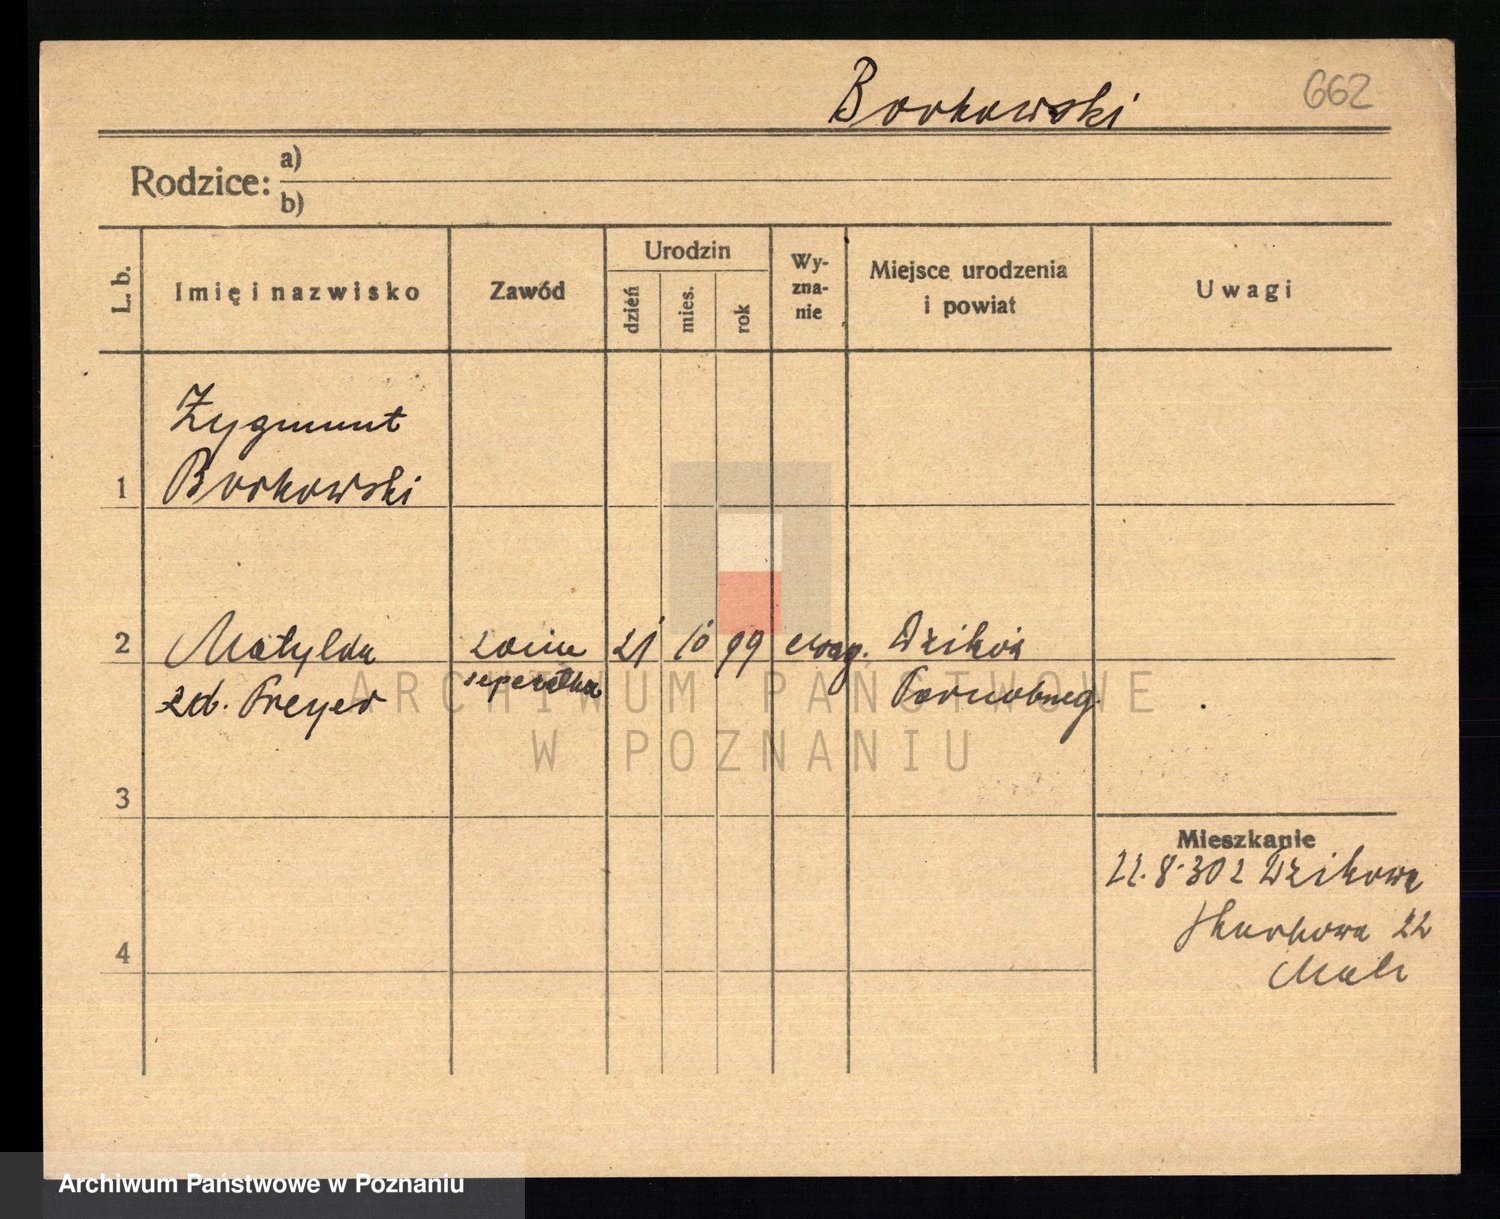 Borkowski 662
Rodzice: a)
b)
L. b. Imię i nazwisko Zawód Urodzin dzień mies. rok Wyznanie Miejsce urodzenia i powiat Uwagi
Zygmunt
1 Borkowski
2 Matylda 21 10 99 ewag. Dzików
Freyer
ARCHIWUM PAŃSTWOWE
W POZNANIU
3
Mieszkanie
22.8.30 z Dzikowa
22
4
Archiwum Państwowe w Poznaniu